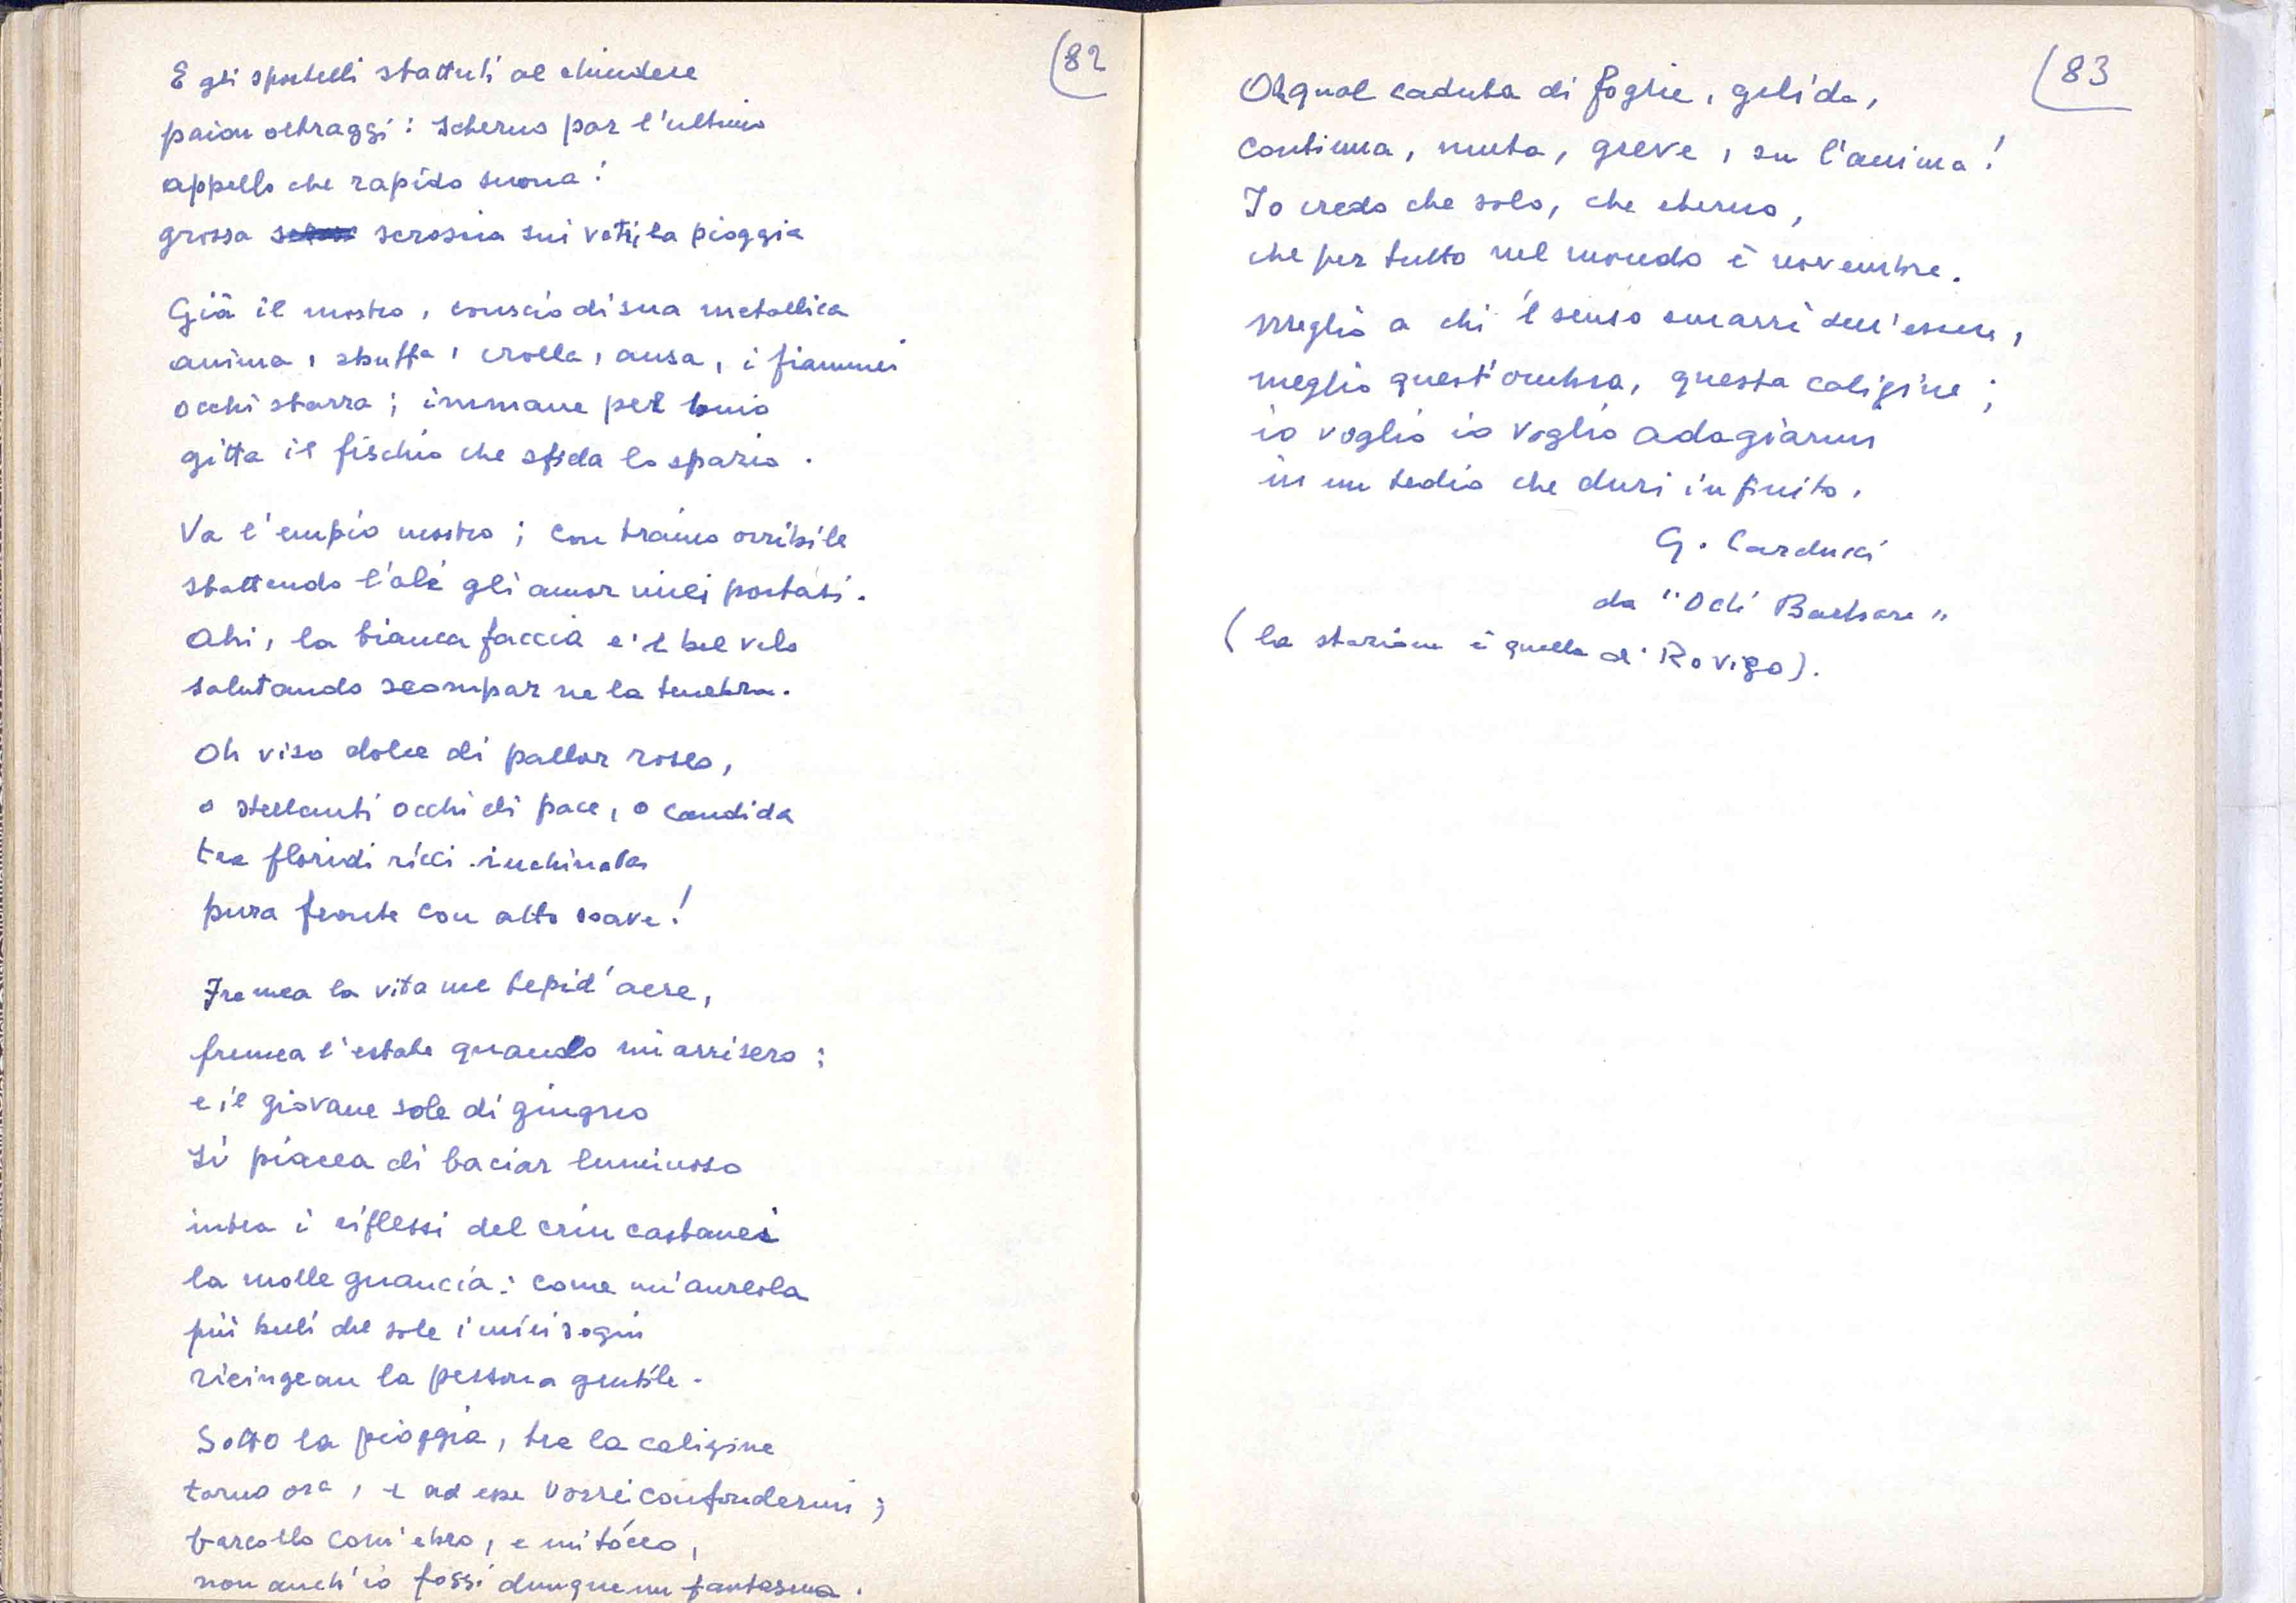 82
E gli sportelli sbattuti al chiudere
paion oltraggi: scherno par l'ultimo
appello che rapido suona!
grossa scroscia sui vetri la pioggia
Già il mostro, conscio di sua metallica
anima, sbuffa, crolla, ansa, i fiammei
occhi sbarra; immane pel buio
gitta il fischio che sfida lo spazio.
Va l'empio mostro; con traino orribile
sbattendo l'ale gli amor miei portasi.
Ahi, la bianca faccia e 'l bel velo
salutando scompar ne la tenebra.
Oh viso dolce di pallor roseo,
o stellanti occhi di pace, o candida
tra floridi ricci inchinata
pura fronte con atto soave!
Fremea la vita nel tepid'aere,
fremea l'estate quando mi arrisero:
e il giovane sole di giugno
si piacea di baciar luminoso
intra i riflessi del crin castanei
la molle guancia: come un'aureola
più belli del sole i miei sogni
ricingean la persona gentile.
Sotto la pioggia, tra la caligine
torno ora, e ad esse vorrei confondermi;
barcollo com'ebro, e mi tócco,
non anch'io fossi dunque un fantasma.
83
Oh qual caduta di foglie, gelida,
continua, muta, greve, su l'anima!
Io credo che solo, che eterno,
che per tutto nel mondo è novembre.
Meglio a chi 'l senso smarrì dell'essere,
meglio quest'ombra, questa caligine;
io voglio io voglio adagiarmi
in un tedio che duri infinito.
G. Carducci
da "Odi Barbare"
(la stazione è quella di Rovigo).